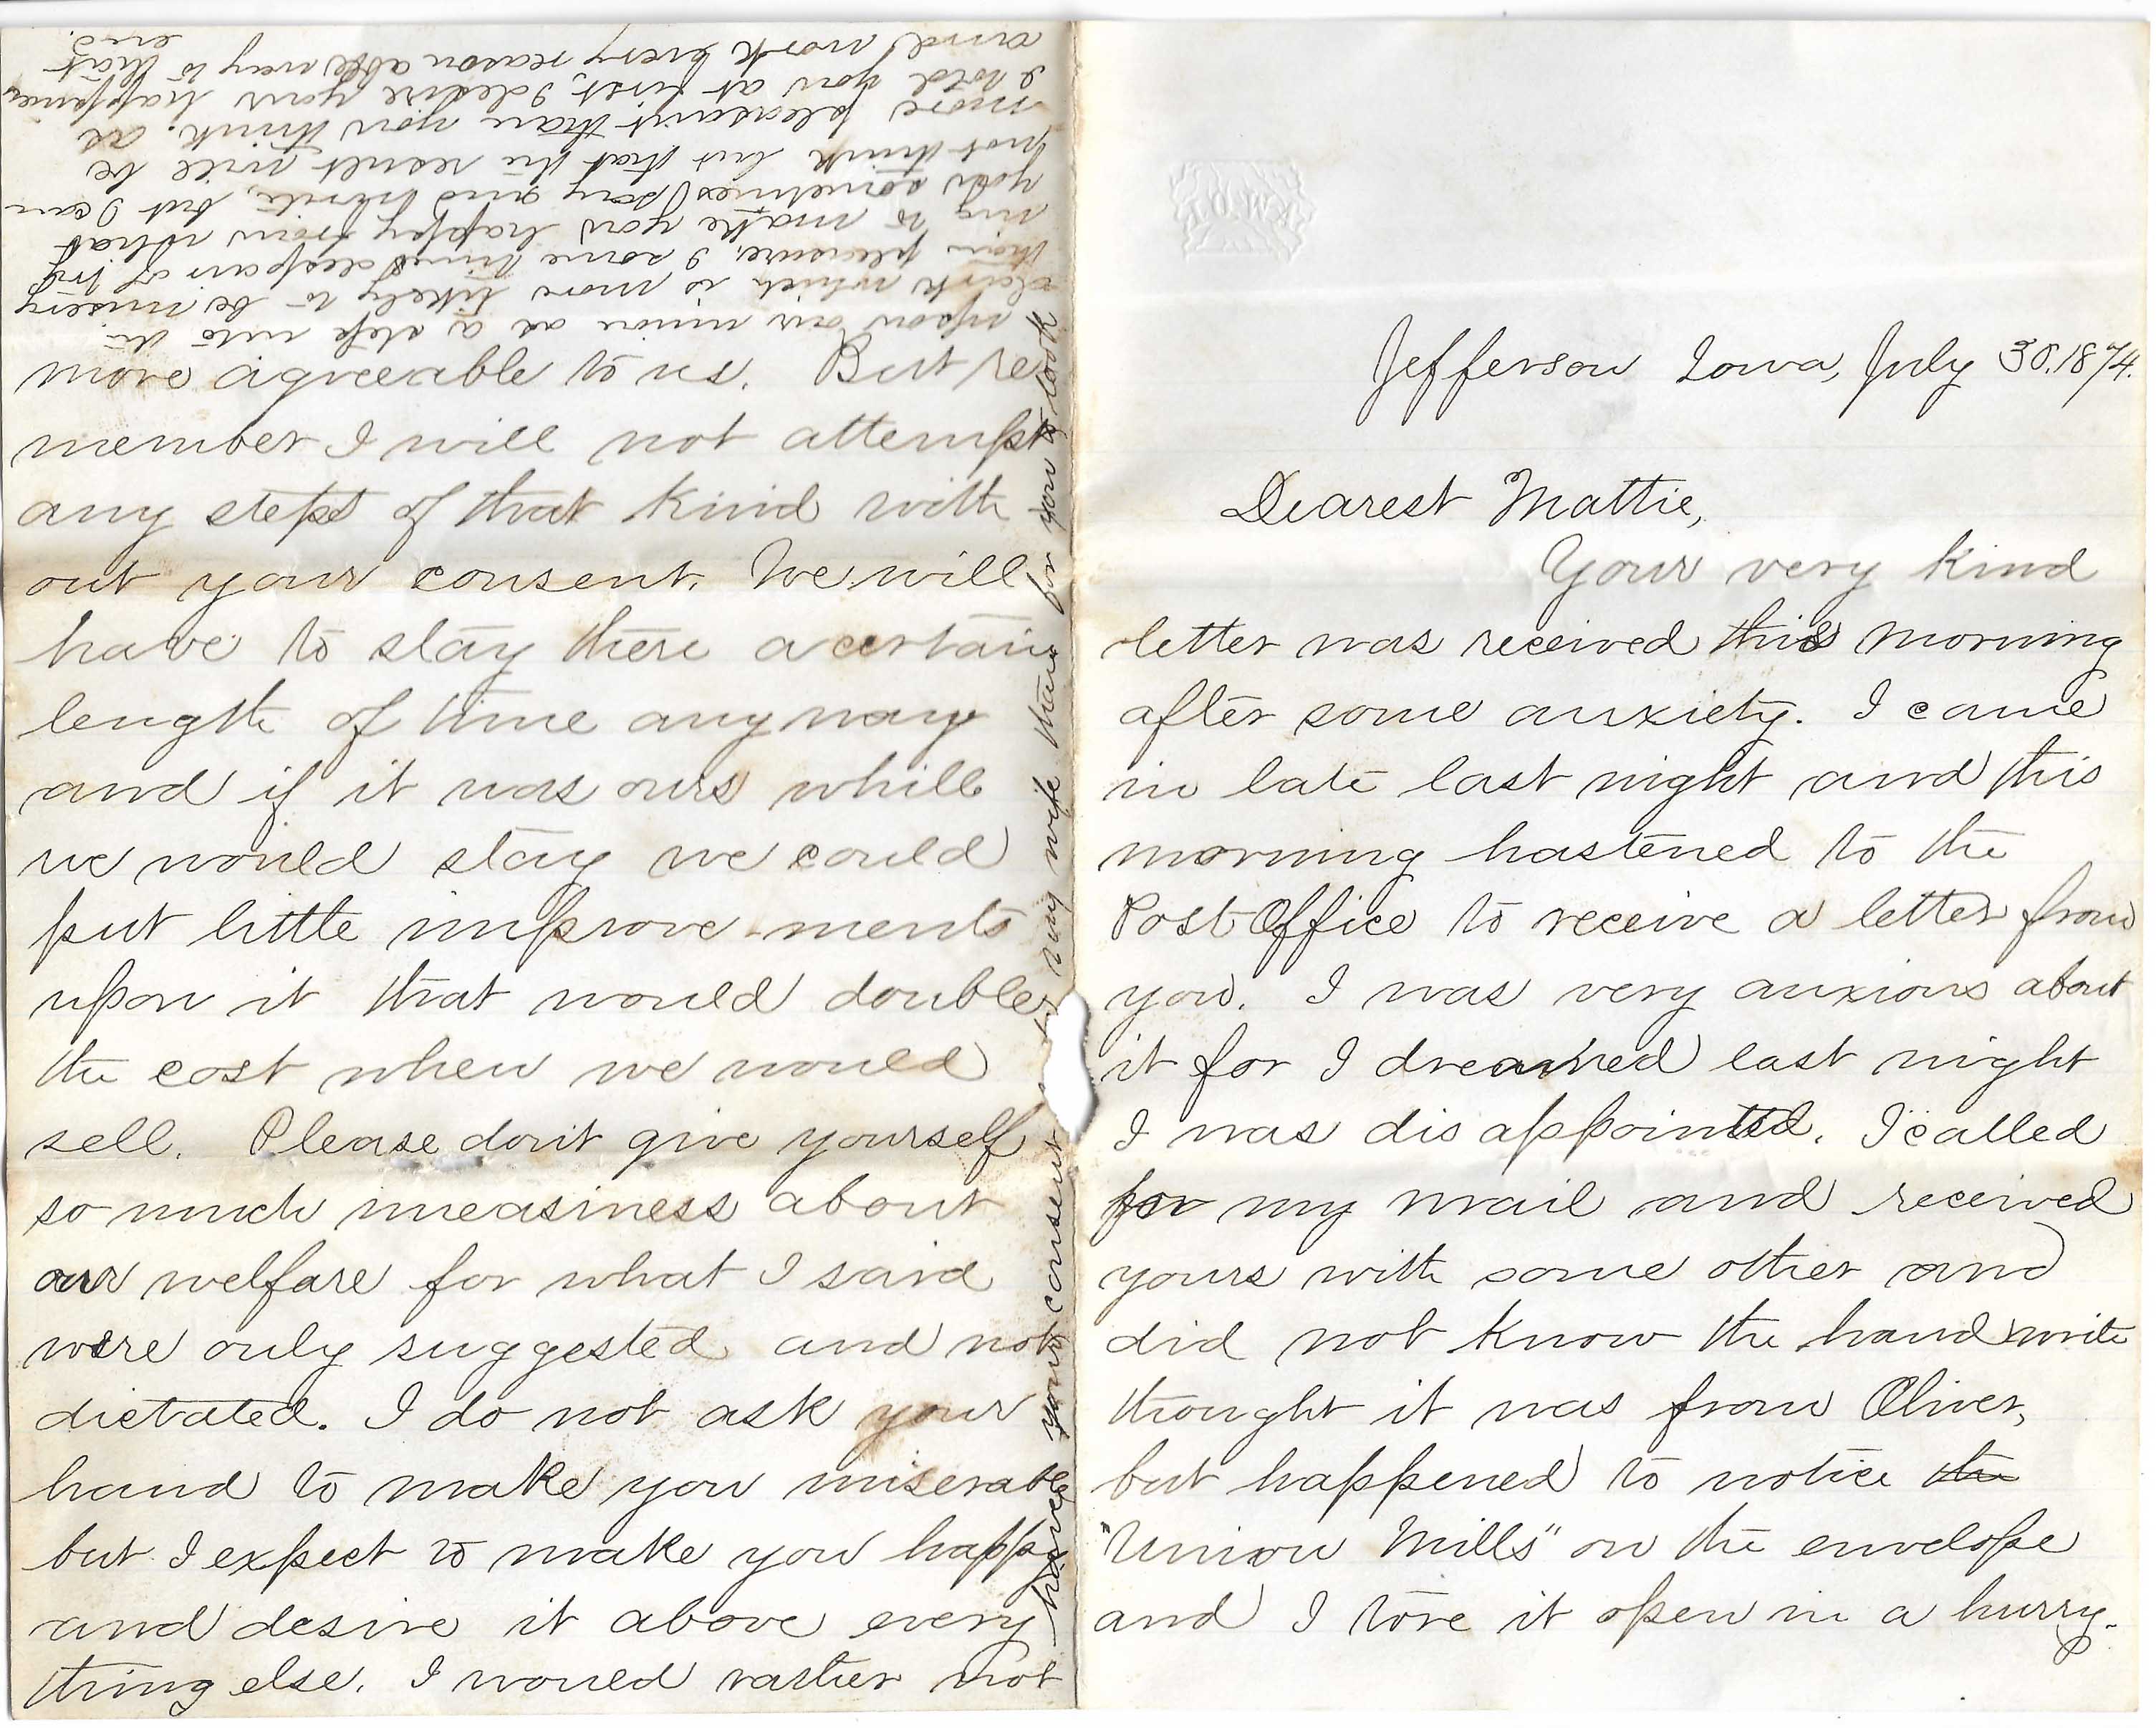 Jefferson Iowa, July 30. 1874.
Dearest Mattie,
Your very kind
letter was received this morning
after some anxiety. I came
in late last night and this
morning hastened to the
Post Office to receive a letter from
you. I was very anxious about
it for I dreamed last night
I was dis appointed. I called
for my mail and received
yours with some other and
did not know the hand write
thought it was from Oliver,
but happened to notice the
"Union Mills" on the envelope
and I tore it open in a hurry.
more agreeable to us. But re
member I will not attempt
any steps of that kind with
out your consent. We will
have to stay there a certain
length of time any way
and if it was ours while
we would stay we could
put little improve ments
upon it that would double
the cost when we would
sell. Please don't give yourself
so much uneasiness about
our welfare for what I said
were only suggested and not
dictated. I do not ask your
hand to make you miserable
but I expect to make you happy
and desire it above every
thing else. I would rather not
have your consent to my wife than for you to look
upon our union as a step into the
dark which is more likely to be misery
than pleasure. I some times despair of try
ing to make you happy from what
you sometimes say and write, but I can
not think but that the result will be
more pleasant than you think. as
I told you at first, I desire your happiness
and work every reason able way to that
end.